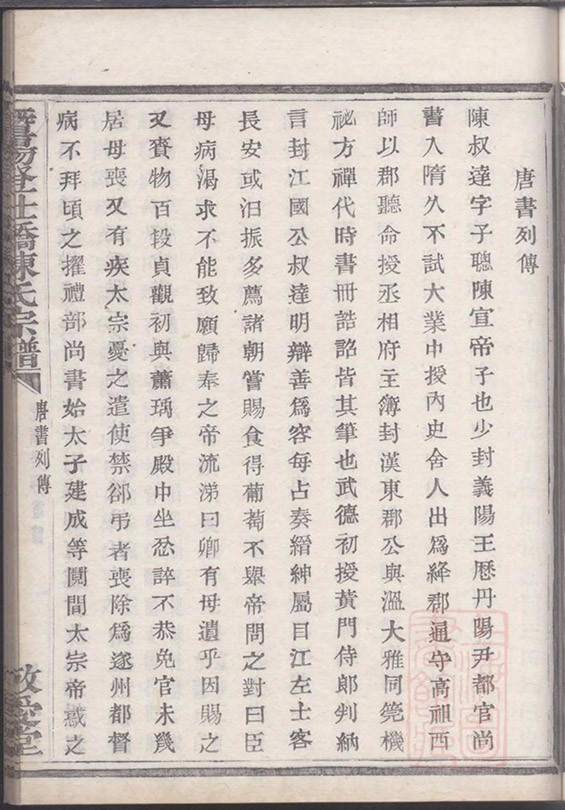 唐書列傳
陳叔達字子聰陳宣帝子也少封義陽王歷丹陽尹都官尚
書入隋久不試大業中授內史舍人出爲絳郡通守高祖西
師以郡聽命授丞相府主簿封漢東郡公與溫大雅同筦機
祕方禪代時書冊誥詔皆其筆也武德初授黃門侍郎判納
言封江國公叔達明辯善爲容每占奏縉紳屬目江左士客
長安或汨振多薦諸朝嘗賜食得葡萄不舉帝問之對曰臣
母病渴求不能致願歸奉之帝流涕曰卿有母遺乎因賜之
又賚物百段貞觀初與蕭瑀爭殿中坐忿誶不恭免官未幾
居母喪又有疾太宗憂之遣使禁郤弔者喪除爲遂州都督
病不拜頃之擢禮部尚書始太子建成等鬩間太宗帝惑之
橋陳氏宗譜
唐書列傳